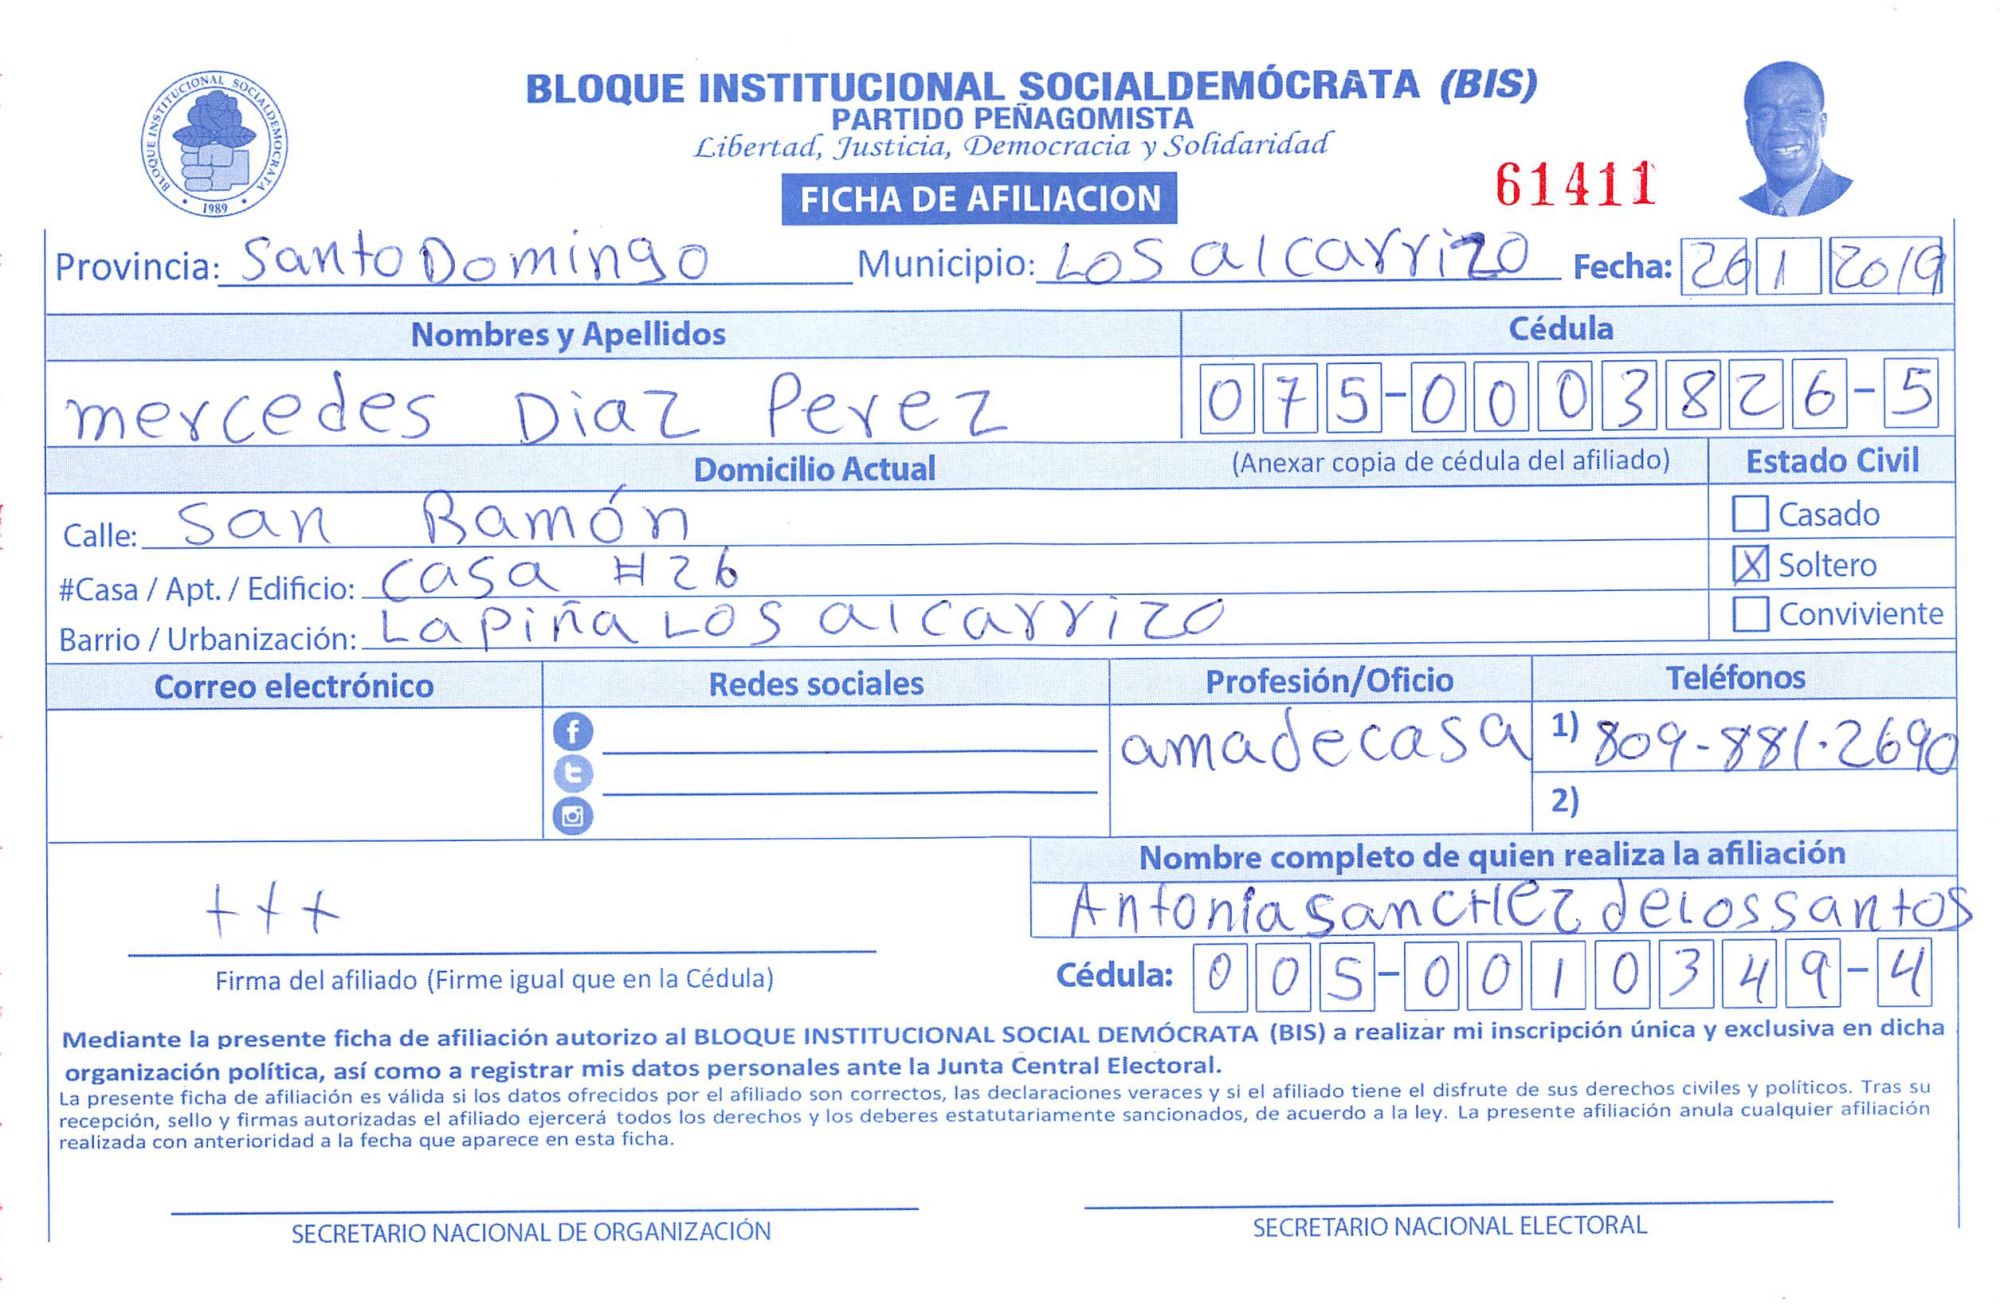 BLOQUE INSTITUCIONAL SOCIALDEMÓCRATA (BIS)
PARTIDO PEÑAGOMISTA
Libertad, Justicia, Democracia y Solidaridad
FICHA DE AFILIACION
61411
BLOQUE INSTITUCIONAL SOCIALDEMOCRATA
1989
Provincia: Santo Domingo Municipio: Los alcarrizo Fecha: 26 1 2019
Nombres y Apellidos Cédula
mercedes Diaz Perez 075-0003826-5
Domicilio Actual (Anexar copia de cédula del afiliado) Estado Civil
Calle: San Ramón
Casado
#Casa / Apt. / Edificio: casa #26
X Soltero
Barrio / Urbanización: La piña Los alcarrizo
Conviviente
Correo electrónico Redes sociales Profesión/Oficio Teléfonos
amadecasa 1) 809-881.2690
2)
Nombre completo de quien realiza la afiliación
+++ Antonia sancHez delossantos
Firma del afiliado (Firme igual que en la Cédula) Cédula: 005-0010349-4
Mediante la presente ficha de afiliación autorizo al BLOQUE INSTITUCIONAL SOCIAL DEMÓCRATA (BIS) a realizar mi inscripción única y exclusiva en dicha
organización política, así como a registrar mis datos personales ante la Junta Central Electoral.
La presente ficha de afiliación es válida si los datos ofrecidos por el afiliado son correctos, las declaraciones veraces y si el afiliado tiene el disfrute de sus derechos civiles y políticos. Tras su
recepción, sello y firmas autorizadas el afiliado ejercerá todos los derechos y los deberes estatutariamente sancionados, de acuerdo a la ley. La presente afiliación anula cualquier afiliación
realizada con anterioridad a la fecha que aparece en esta ficha.
SECRETARIO NACIONAL DE ORGANIZACIÓN SECRETARIO NACIONAL ELECTORAL